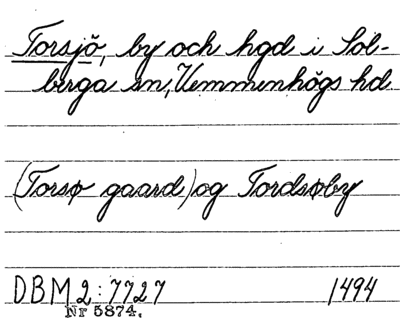 Torsjö, by och hgd i Sol-
berga sn, Vemmenhögs hd
(Torsø gaard) og Tordsøby
DBM 2:7727 1494
Nr 5874.